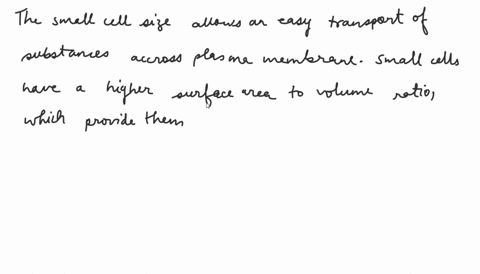 The small cell size allows an easy transport of
substances accross plasma membrane. Small cells
have a higher surface area to volume ratio,
which provide them